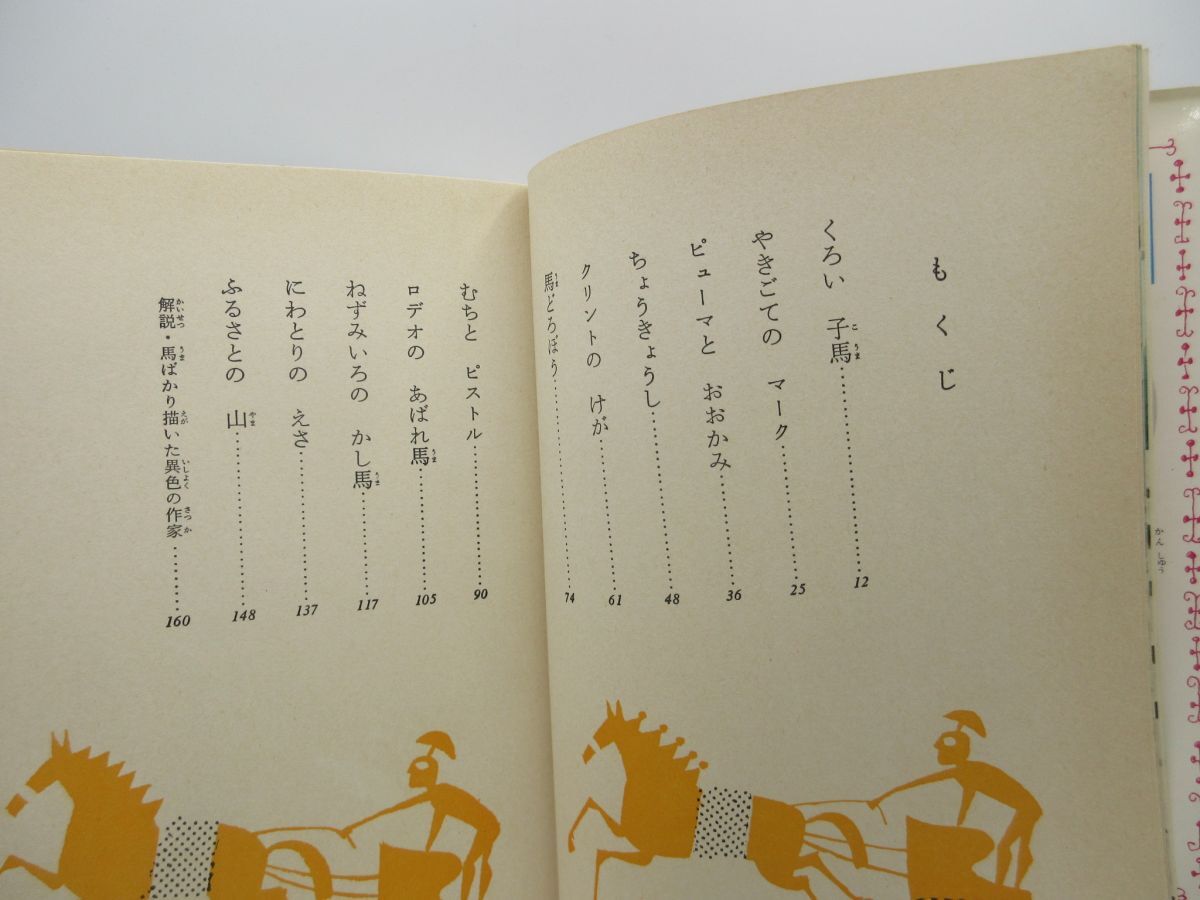 もくじ
くろい 子馬 12
やきごての マーク 25
ピューマと おおかみ 36
ちょうきょうし 48
クリントの けが 61
馬どろぼう 74
むちと ピストル 90
ロデオの あばれ馬 105
ねずみいろの かし馬 117
にわとりの えさ 137
ふるさとの 山 148
解説・馬ばかり描いた異色の作家 160
かん しゅう